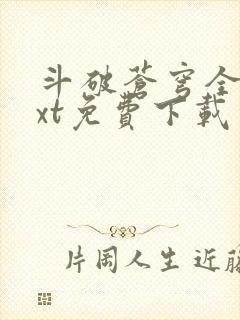 斗破蒼穹全
xt免費下載
片岡人生近藤